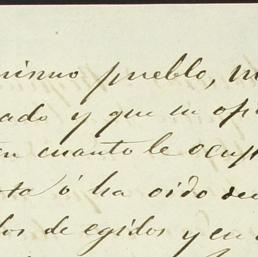 mismo pueblo,
ado y que su op
en cuanto le ocup
ota ó ha oido de
los de egidos y en